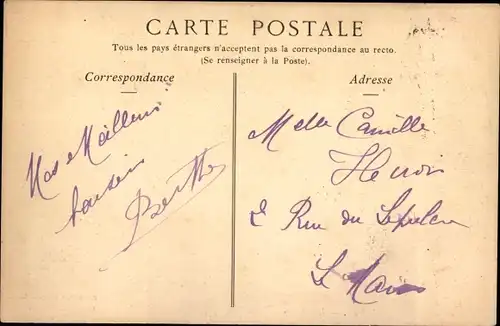 CARTE POSTALE
Tous les pays étrangers n'acceptent pas la correspondance au recto.
(Se renseigner à la Poste).
Correspondance
Adresse
Nos Meilleurs
baisers
Berthe
Melle Camille
2 Rue du
Le Mans